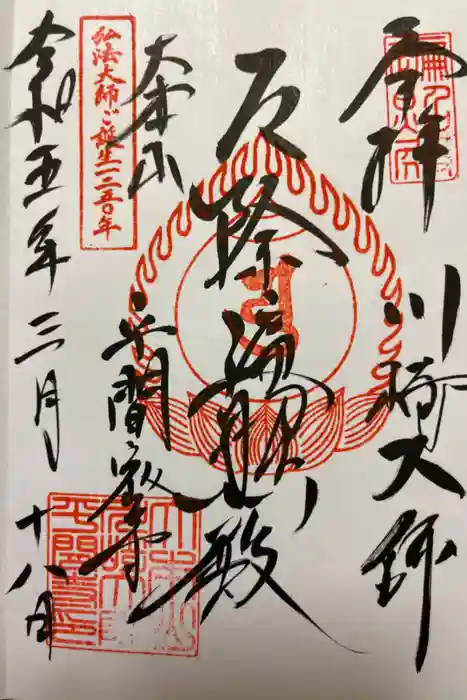 奉拝
川崎大師
厄除遍照殿
大本山
平間寺
弘法大師ご誕生一二五〇年
令和五年三月十八日